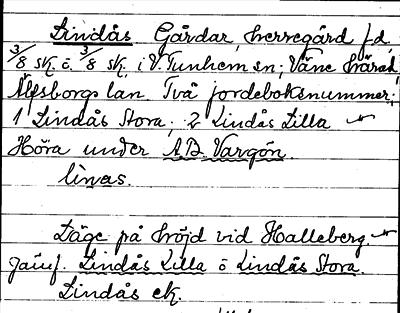 Lindås Gårdar, herregård f.d.
3/8 sk. o. 3/8 sk. i V. Tunhem sn; Väne härad
Älfsborgs län. Två jordeboksnummer:
1 Lindås Stora; 2 Lindås Lilla
Höra under A.B. Vargön.
linas.
Läge på höjd vid Halleberg.
Jämf. Lindås Lilla o Lindås Stora.
Lindås ek.